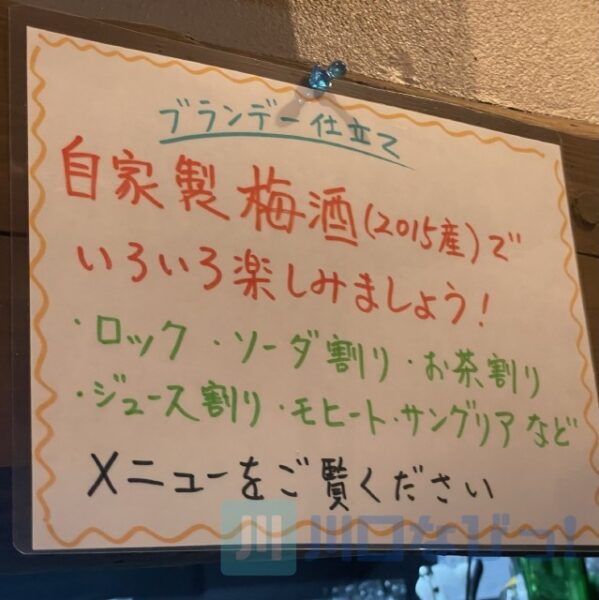 ブランデー仕立て
自家製梅酒(2015産)で
いろいろ楽しみましょう!
・ロック・ソーダ割り・お茶割り
・ジュース割り・モヒート・サングリアなど
メニューをご覧ください
川口なびっ!